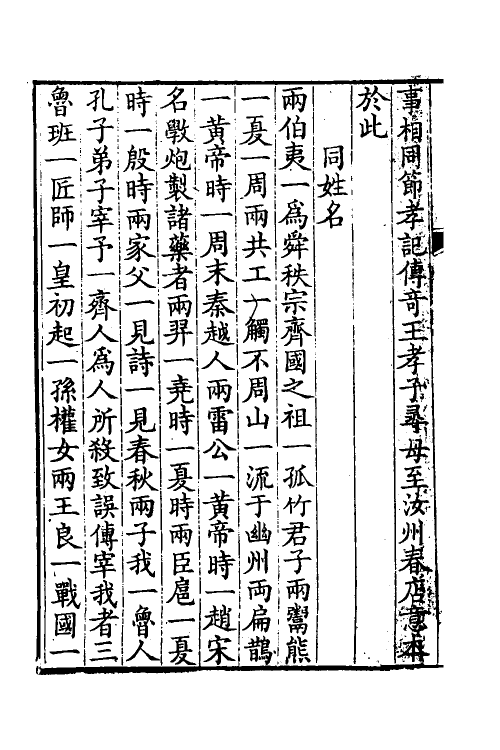 事相同節孝記傳奇王孝子尋母至汝州春店意本
於此
同姓名
兩伯夷一爲舜秩宗齊國之祖一孤竹君子兩鬻熊
一夏一周兩共工一觸不周山一流于幽州両扁鵲
一黄帝時一周末秦越人兩雷公一黄帝時一趙宋
名斆炮製諸藥者兩羿一堯時一夏時兩臣扈一夏
時一殷時兩家父一見詩一見春秋兩子我一魯人
孔子弟子宰予一齊人爲人所殺致誤傳宰我者三
魯班一匠師一皇初起一孫權女兩王良一戰國一